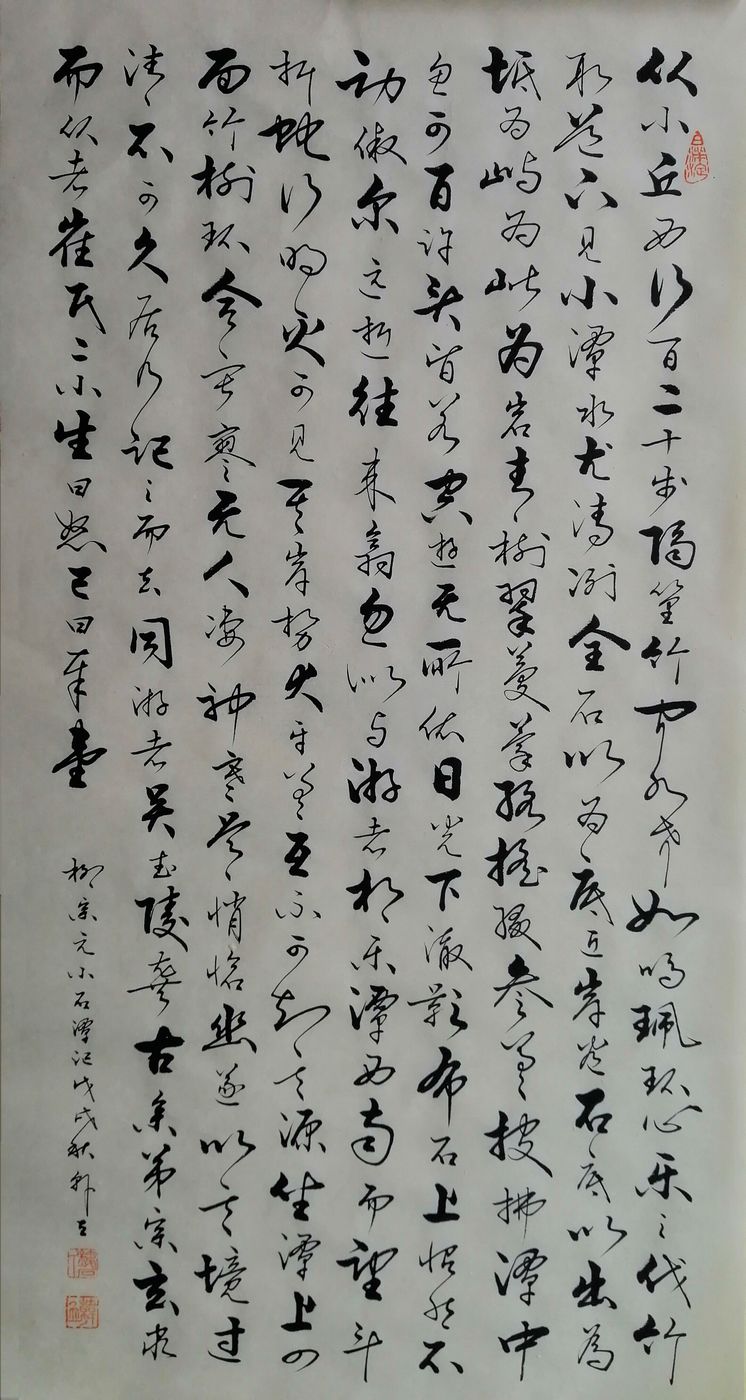 从小丘西行百二十步隔篁竹闻水声如鸣珮环心乐之伐竹
取道下见小潭水尤清冽全石以为底近岸卷石底以出为
坻为屿为嵁为岩青树翠蔓蒙络摇缀参差披拂潭中
鱼可百许头皆若空游无所依日光下澈影布石上怡然不
动俶尔远逝往来翕忽似与游者相乐潭西南而望斗
折蛇行明灭可见其岸势犬牙差互不可知其源坐潭上四
面竹树环合寂寥无人凄神寒骨悄怆幽邃以其境过
清不可久居乃记之而去同游者吴武陵龚古余弟宗玄隶
而从者崔氏二小生曰恕己曰奉壹
柳宗元小石潭记戊戌秋